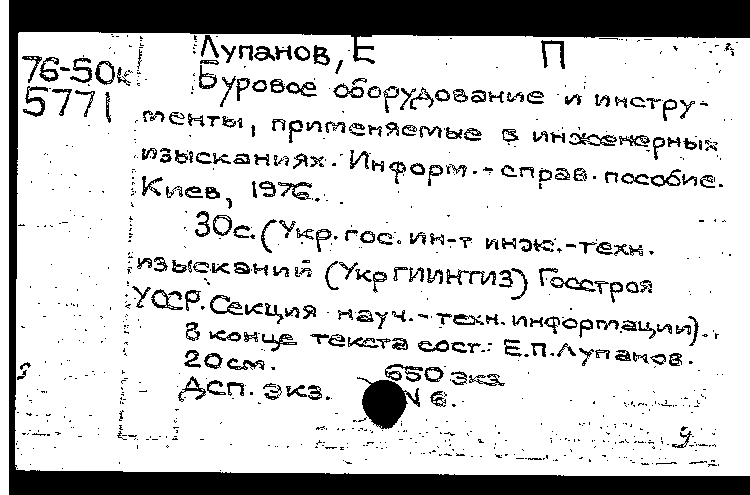 Лупанов, Е П
76-50к
5771
Буровое оборудование и инстру-
менты, применяемые в инженерных
изысканиях. Информ.-справ. пособие.
Киев, 1976.
30с. (Укр. гос. ин-т инж.-техн.
изысканий (УкрГИИНТИЗ) Госстроя
УССР. Секция науч.-техн. информации).
В конце текста сост.: Е.П. Лупанов.
20см. 650 экз
ДСП. экз. N 6.